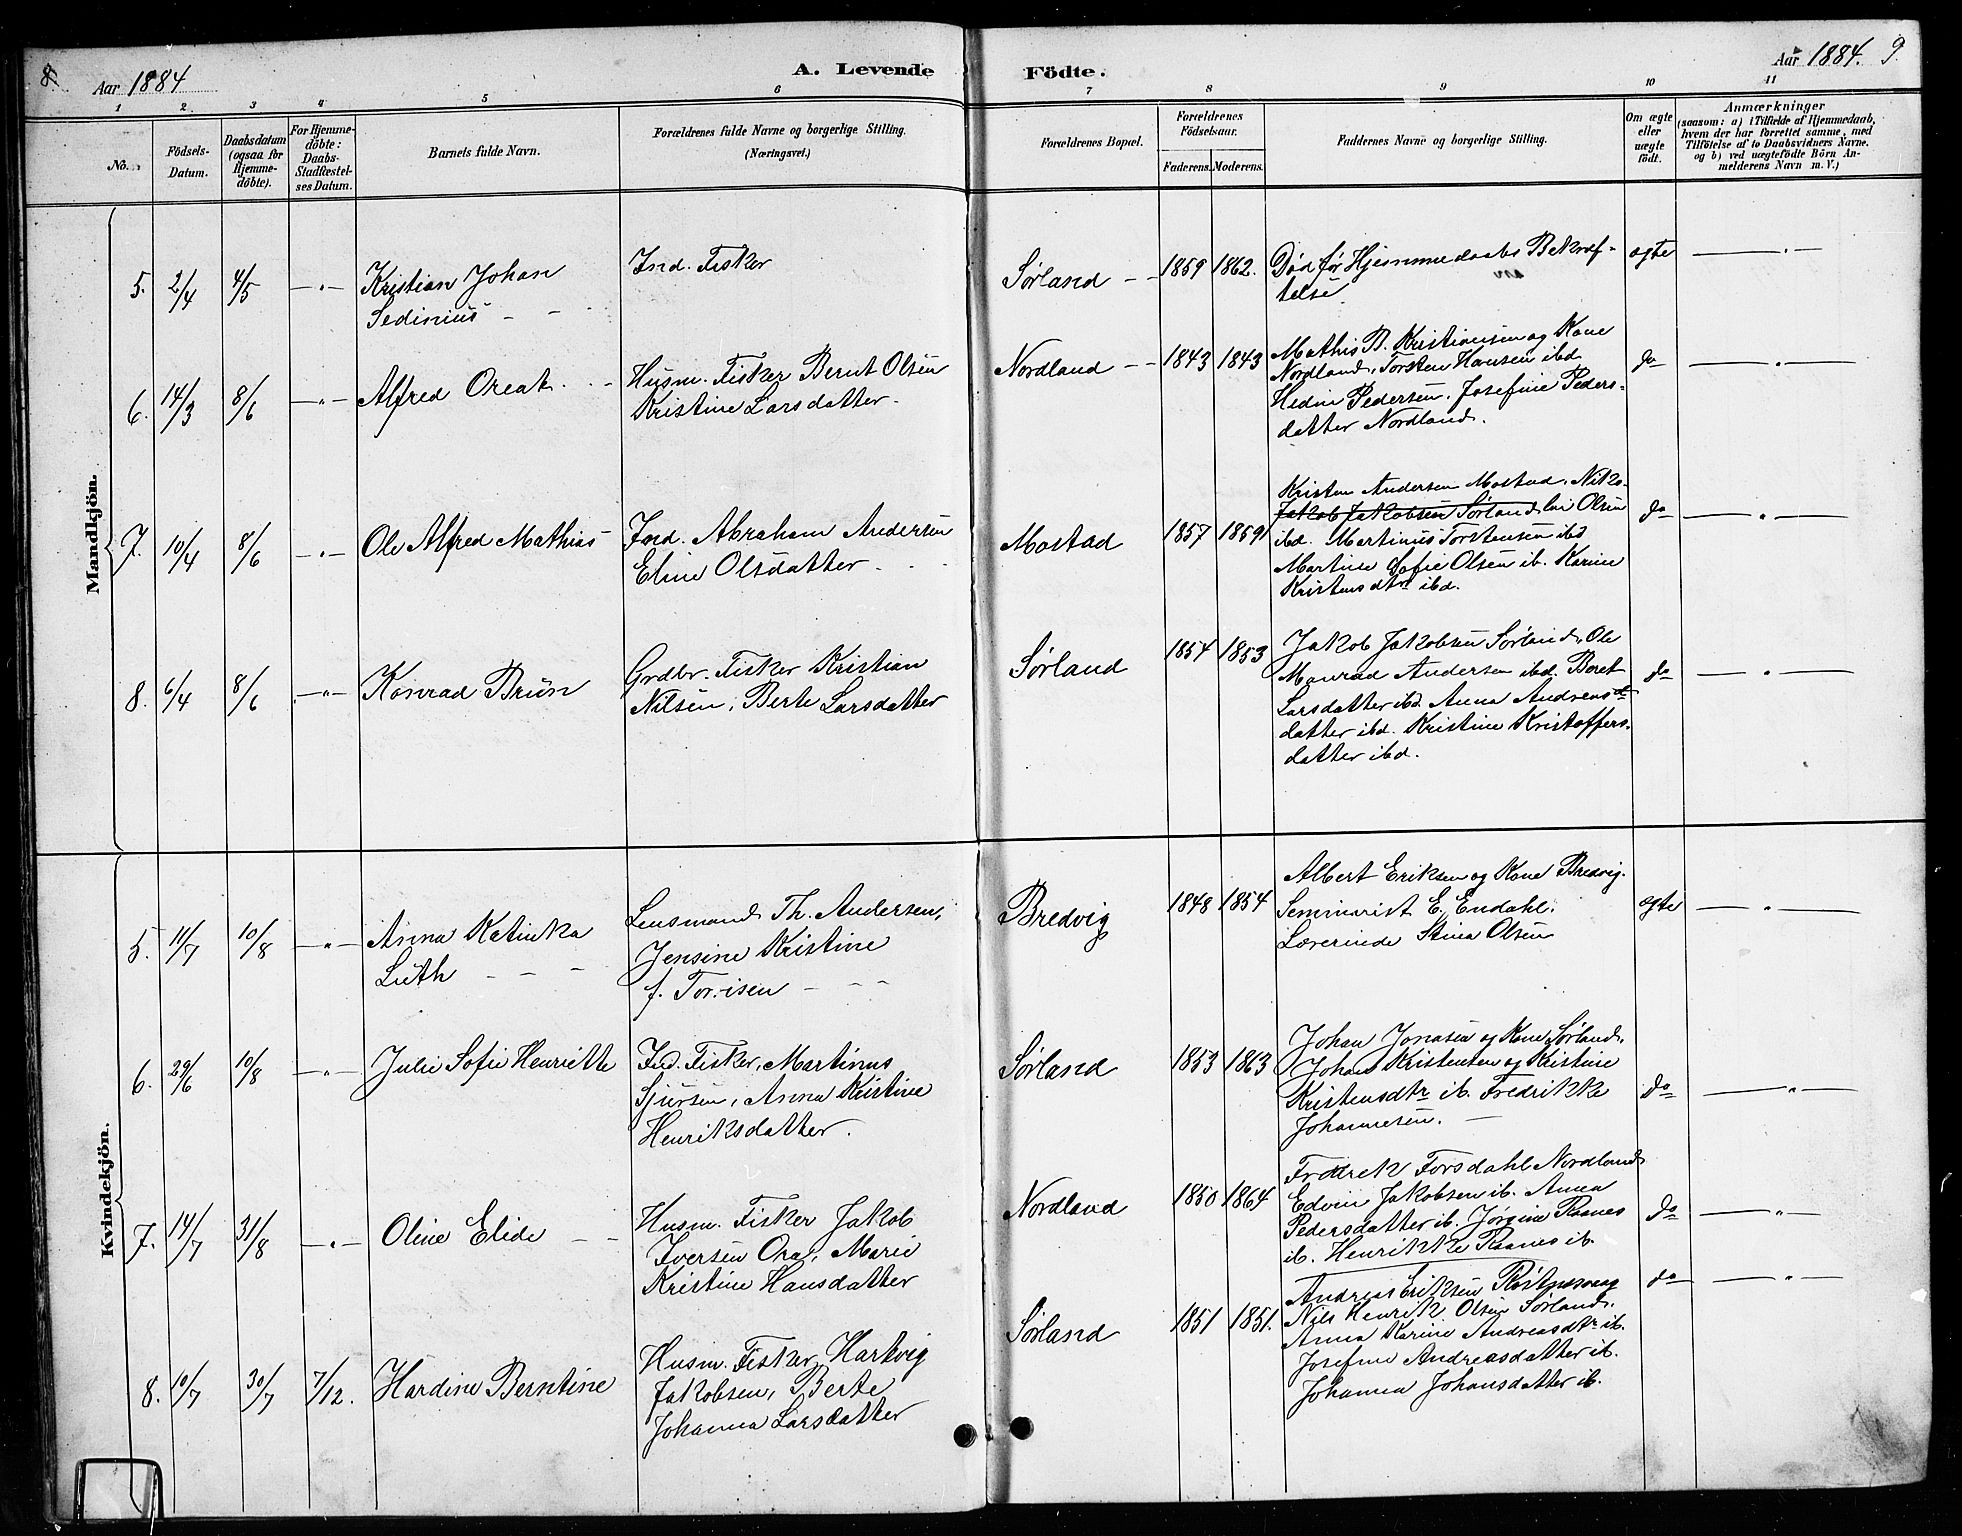 8.
Aar 1884
A. Levende
Födte.
Aar 1884. 9.
1 2. 3 4 5 6 7 8 9 10 11
No.
Födsels-Datum.
Daabsdatum (ogsaa for Hjemme-döbte).
For Hjemme-döbte: Daabs-Stadfæstelses Datum.
Barnets fulde Navn.
Forældrenes fulde Navne og borgerlige Stilling. (Næringsvei.)
Forældrenes Bopæl.
Forældrenes Födselsaar.
Faderens. Moderens.
Faddernes Navne og borgerlige Stilling.
Om ægte eller uægte födt.
Anmærkninger
(saasom: a) i Tilfælde af Hjemmedaab, hvem der har forrettet samme, med Tilföielse af to Daabsvidners Navne. og b) ved uægtefödte Börn Anmelderens Navn m. V.)
Mandkjön.
5. 2/4 4/5 — „ — Kristian Johan
Sedinius - -
Ind. Fisker
Sørland - - 1859 1862.
Død før Hjemmedaabs Bekræf-
telse.
ægte — „ —
6. 14/3 8/6 — „ — Alfred Oreat
Husm. Fisker Bernt Olsen
Kristine Larsdatter.
Nordland - - 1843 1843
Mathis B. Kristiansen og Kone
Nordland, Torsten Hansen ibd
Hedin Pedersen, Josefine Peders-
datter Nordland.
do — „ —
7. 10/4 8/6 — „ — Ole Alfred Mathias
Ind. Abraham Andersen
Eline Olsdatter
Mostad 1857 1859
Kristen Andersen Mostad, Niko-
Jakob Jakobsen Sørland lai Olsen
ibd. Martinus Torstensen ibd
Martine Sofie Olsen ib. Karine
Kristensdtr ibd.
do — „ —
8. 6/4 8/6 — „ — Konrad Brun
Grdbr. Fisker Kristian
Nilsen, Berte Larsdatter
Sørland 1854 1853
Jakob Jakobsen Sørland, Ole
Monrad Andersen ibd. Beret
Larsdatter ibd. Anna Andreas
datter ibd. Kristine Kristoffers-
datter ibd.
do — „ —
Kvindekjön.
5. 11/7 10/8 — „ — Anna Katinka
Luth - - -
Lensmand Th. Andersen,
Jensine Kristine
f. Torrisen - - -
Bredvig 1848 1854
Albert Eriksen og Kone Bredvig.
Seminarist E. Endahl.
Lærerinde Stina Olsen
ægte — „ —
6. 29/6 10/8 — „ — Julie Sofie Henriette
Ind. Fisker, Martinus
Sjursen, Anna Kristine
Henriksdatter.
Sørland 1853 1863
Johan Jonasen og Kone Sørland,
Johan Kristensen og Kristine
Kristensdtr ib. Fredrikke
Johannesen. —
do — „ —
7. 14/7 31/8 — „ — Oline Elide - -
Husm. Fisker Jakob
Iversen Ora, Marie
Kristine Hansdatter
Nordland 1850 1864
Fredrek Forsdahl Nordland
Edvin Jakobsen ib. Anna
Pedersdatter ib. Jørgine Raanes
ib. Henrikke Raanes ib.
do — „ —
8. 10/7 30/7 7/12. Hardine Berntine
Husm. Fisker Hartvig
Jakobsen, Berte
Johanna Larsdatter
Sørland 1851 1851.
Andreas Eriksen Røstnesvaag
Nils Henrik Olsen Sørland.
Anna Karine Andreasdtr ib.
Josefine Andreasdatter ib.
Johanna Johansdatter ib.
do — „ —